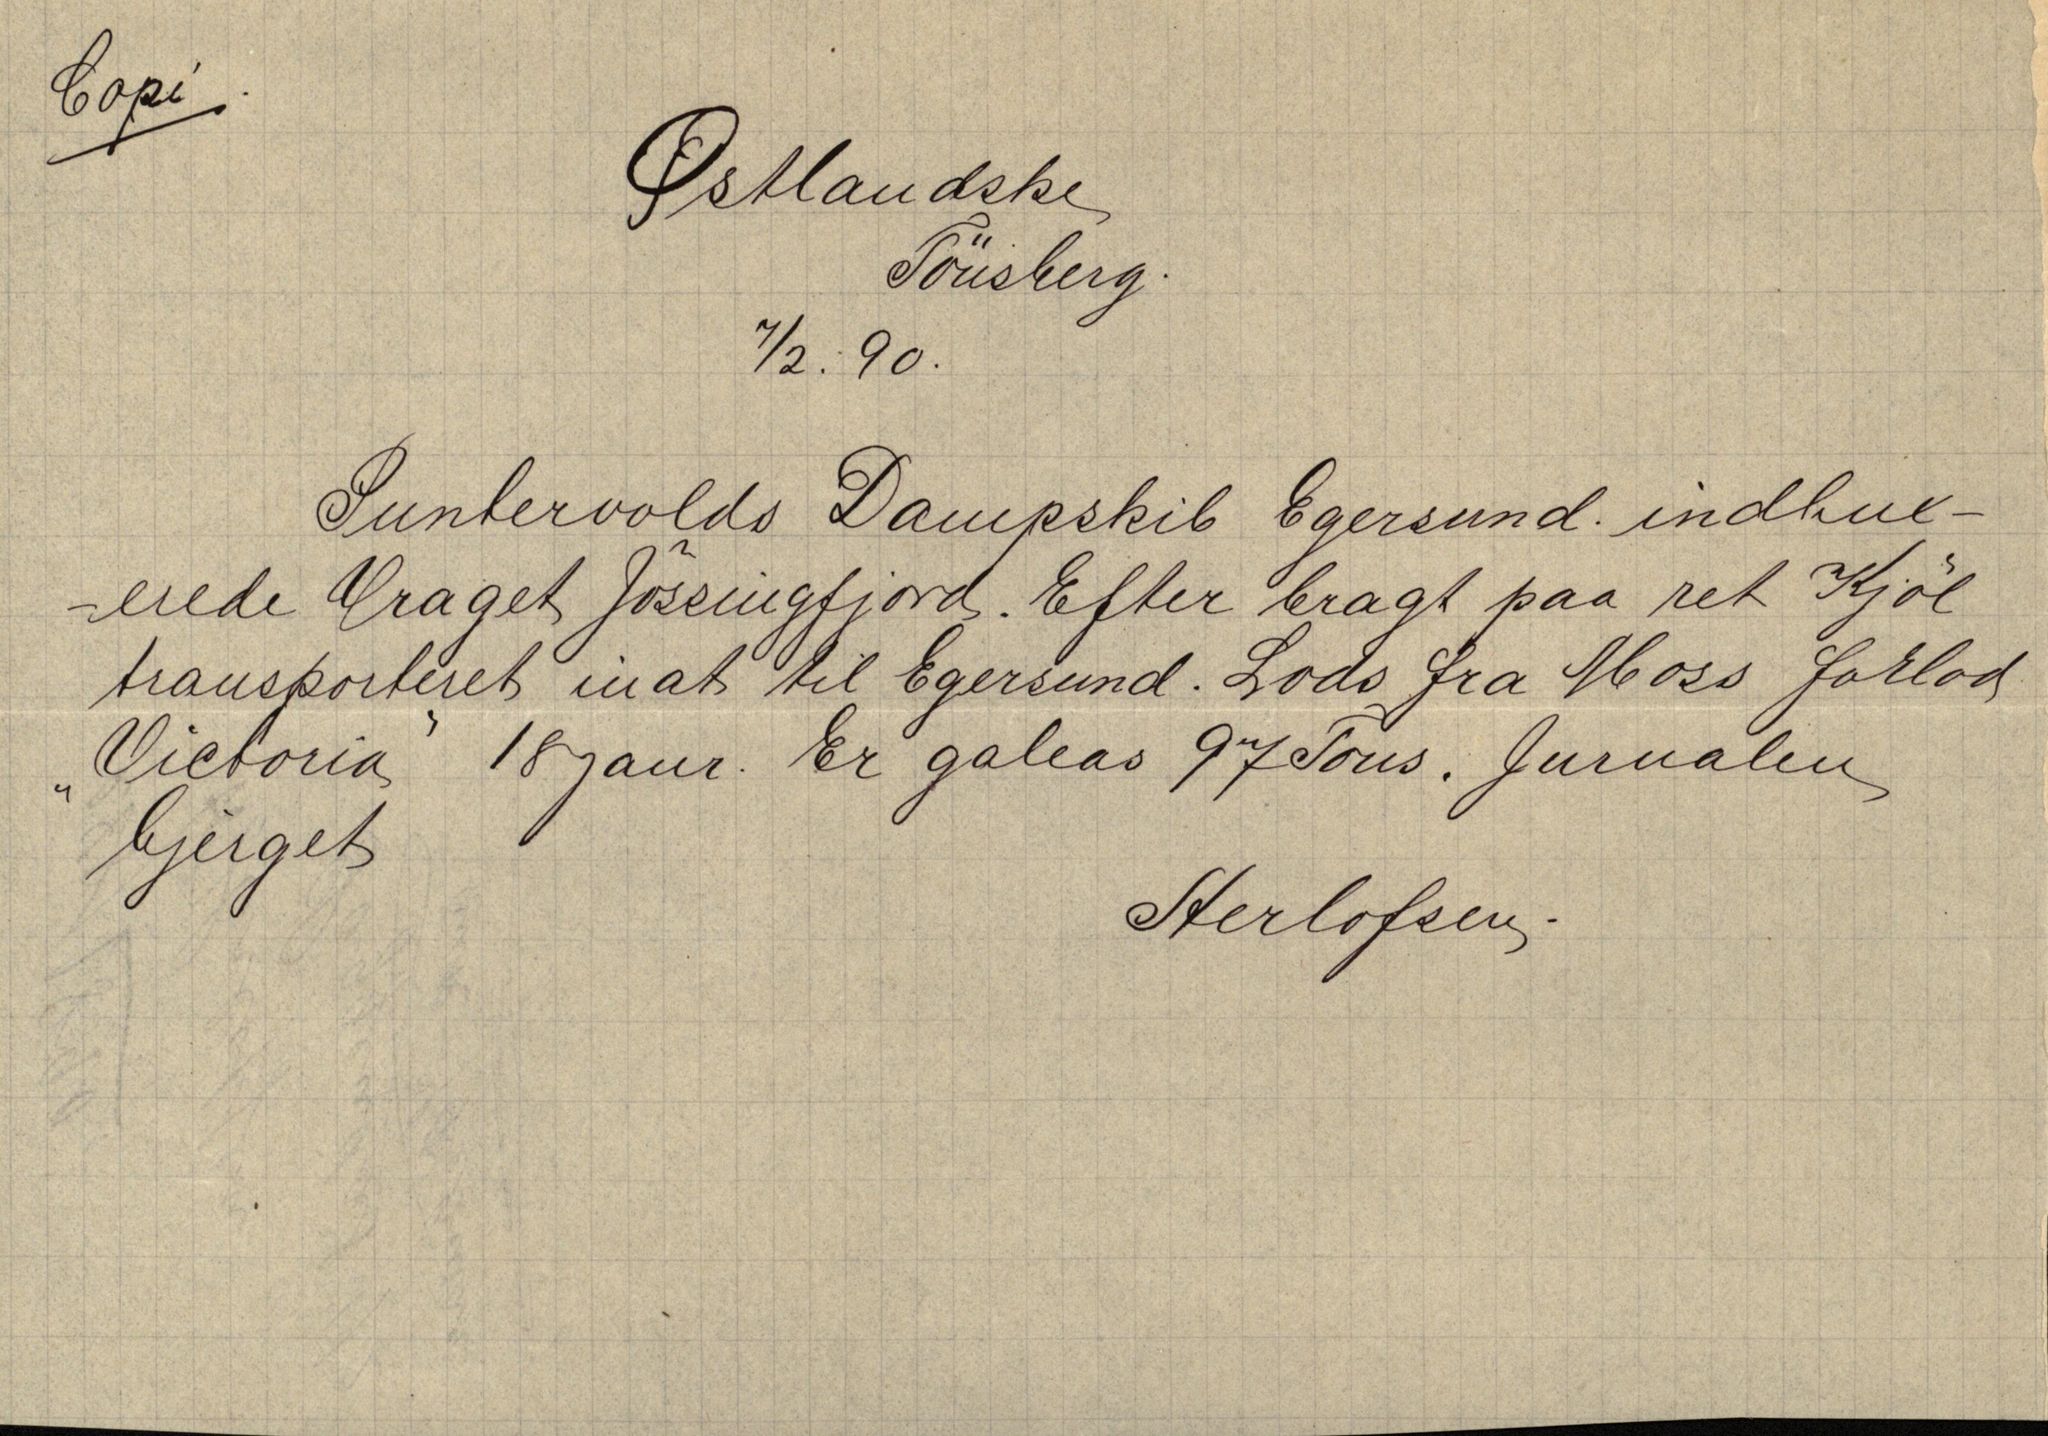 Copi.
Østlandske
Tönsberg.
7/2. 90.
Puntervolds Dampskib Egersund. indbux-
-erede Vraget Jössingfjord. Efter bragt paa ret Kjöl
transporteret inat til Egersund. Lods fra Moss forlod
„Victoria" 18 janr. Er galeas 97 Tons. Jurnalen
bjerget
Herlofsen.